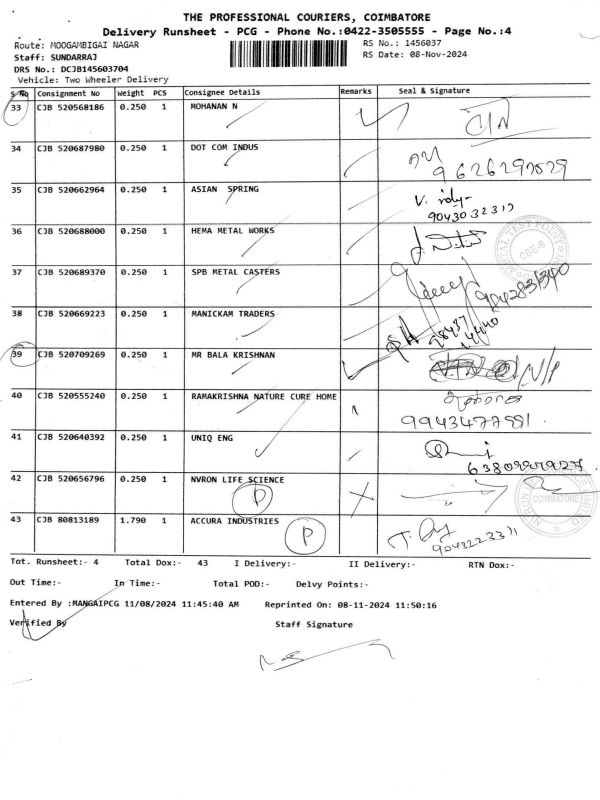 THE PROFESSIONAL COURIERS, COIMBATORE
Delivery Runsheet - PCG - Phone No.:0422-3505555 - Page No.:4
Route: MOOGAMBIGAI NAGAR RS No.: 1456037
Staff: SUNDARRAJ RS Date: 08-Nov-2024
DRS No.: DCJB145603704
Vehicle: Two Wheeler Delivery
S No Consignment No Weight PCS Consignee Details Remarks Seal & Signature
33 CJB 520568186 0.250 1 MOHANAN N
34 CJB 520687980 0.250 1 DOT COM INDUS
9626297529
35 CJB 520662964 0.250 1 ASIAN SPRING
9043032317
36 CJB 520688000 0.250 1 HEMA METAL WORKS
CBE-6
37 CJB 520689370 0.250 1 SPB METAL CASTERS
38 CJB 520669223 0.250 1 MANICKAM TRADERS
39 CJB 520709269 0.250 1 MR BALA KRISHNAN
N/P
40 CJB 520555240 0.250 1 RAMAKRISHNA NATURE CURE HOME
41 CJB 520640392 0.250 1 UNIQ ENG
42 CJB 520656796 0.250 1 NVRON LIFE SCIENCE
P
COIMBATORE
43 CJB 80813189 1.790 1 ACCURA INDUSTRIES P
Tot. Runsheet:- 4 Total Dox:- 43 I Delivery:- II Delivery:- RTN Dox:-
Out Time:- In Time:- Total POD:- Delvy Points:-
Entered By :MANGAIPCG 11/08/2024 11:45:40 AM Reprinted On: 08-11-2024 11:50:16
Verified By Staff Signature